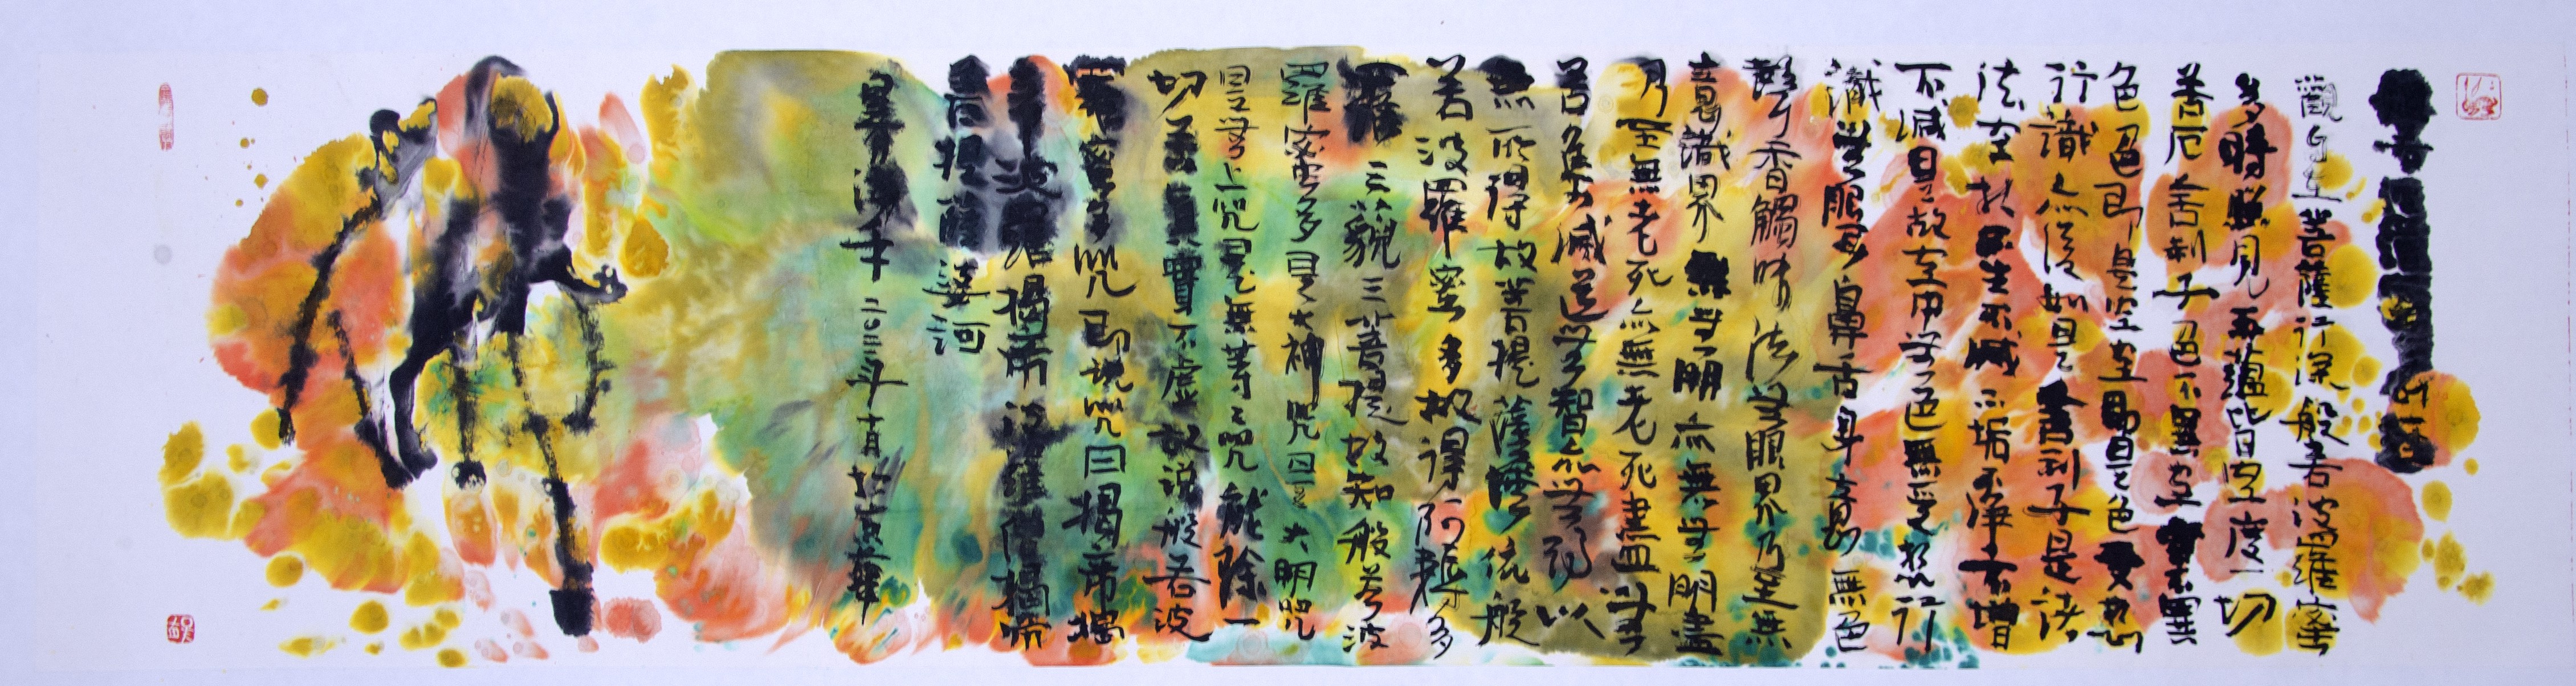 般若波羅蜜多心經
觀自在菩薩行深般若波羅蜜
多時照見五蘊皆空度一切
苦厄舍利子色不異空空不異
色色即是空空即是色受想
行識亦復如是舍利子是諸
法空相不生不滅不垢不淨不增
不減是故空中無色無受想行
識無眼耳鼻舌身意無色
聲香觸味法無眼界乃至無
意識界無無明亦無無明盡
乃至無老死亦無老死盡無
苦集滅道無智亦無得以
無所得故菩提薩埵依般
若波羅蜜多故得阿耨多
羅三藐三菩提故知般若波
羅蜜多是大神咒是大明咒
是無上咒是無等等咒能除一
切苦真實不虛故說般若波
羅蜜多咒即說咒曰揭帝揭
帝波羅揭帝波羅僧揭帝
菩提薩婆訶
二〇二二年十月於